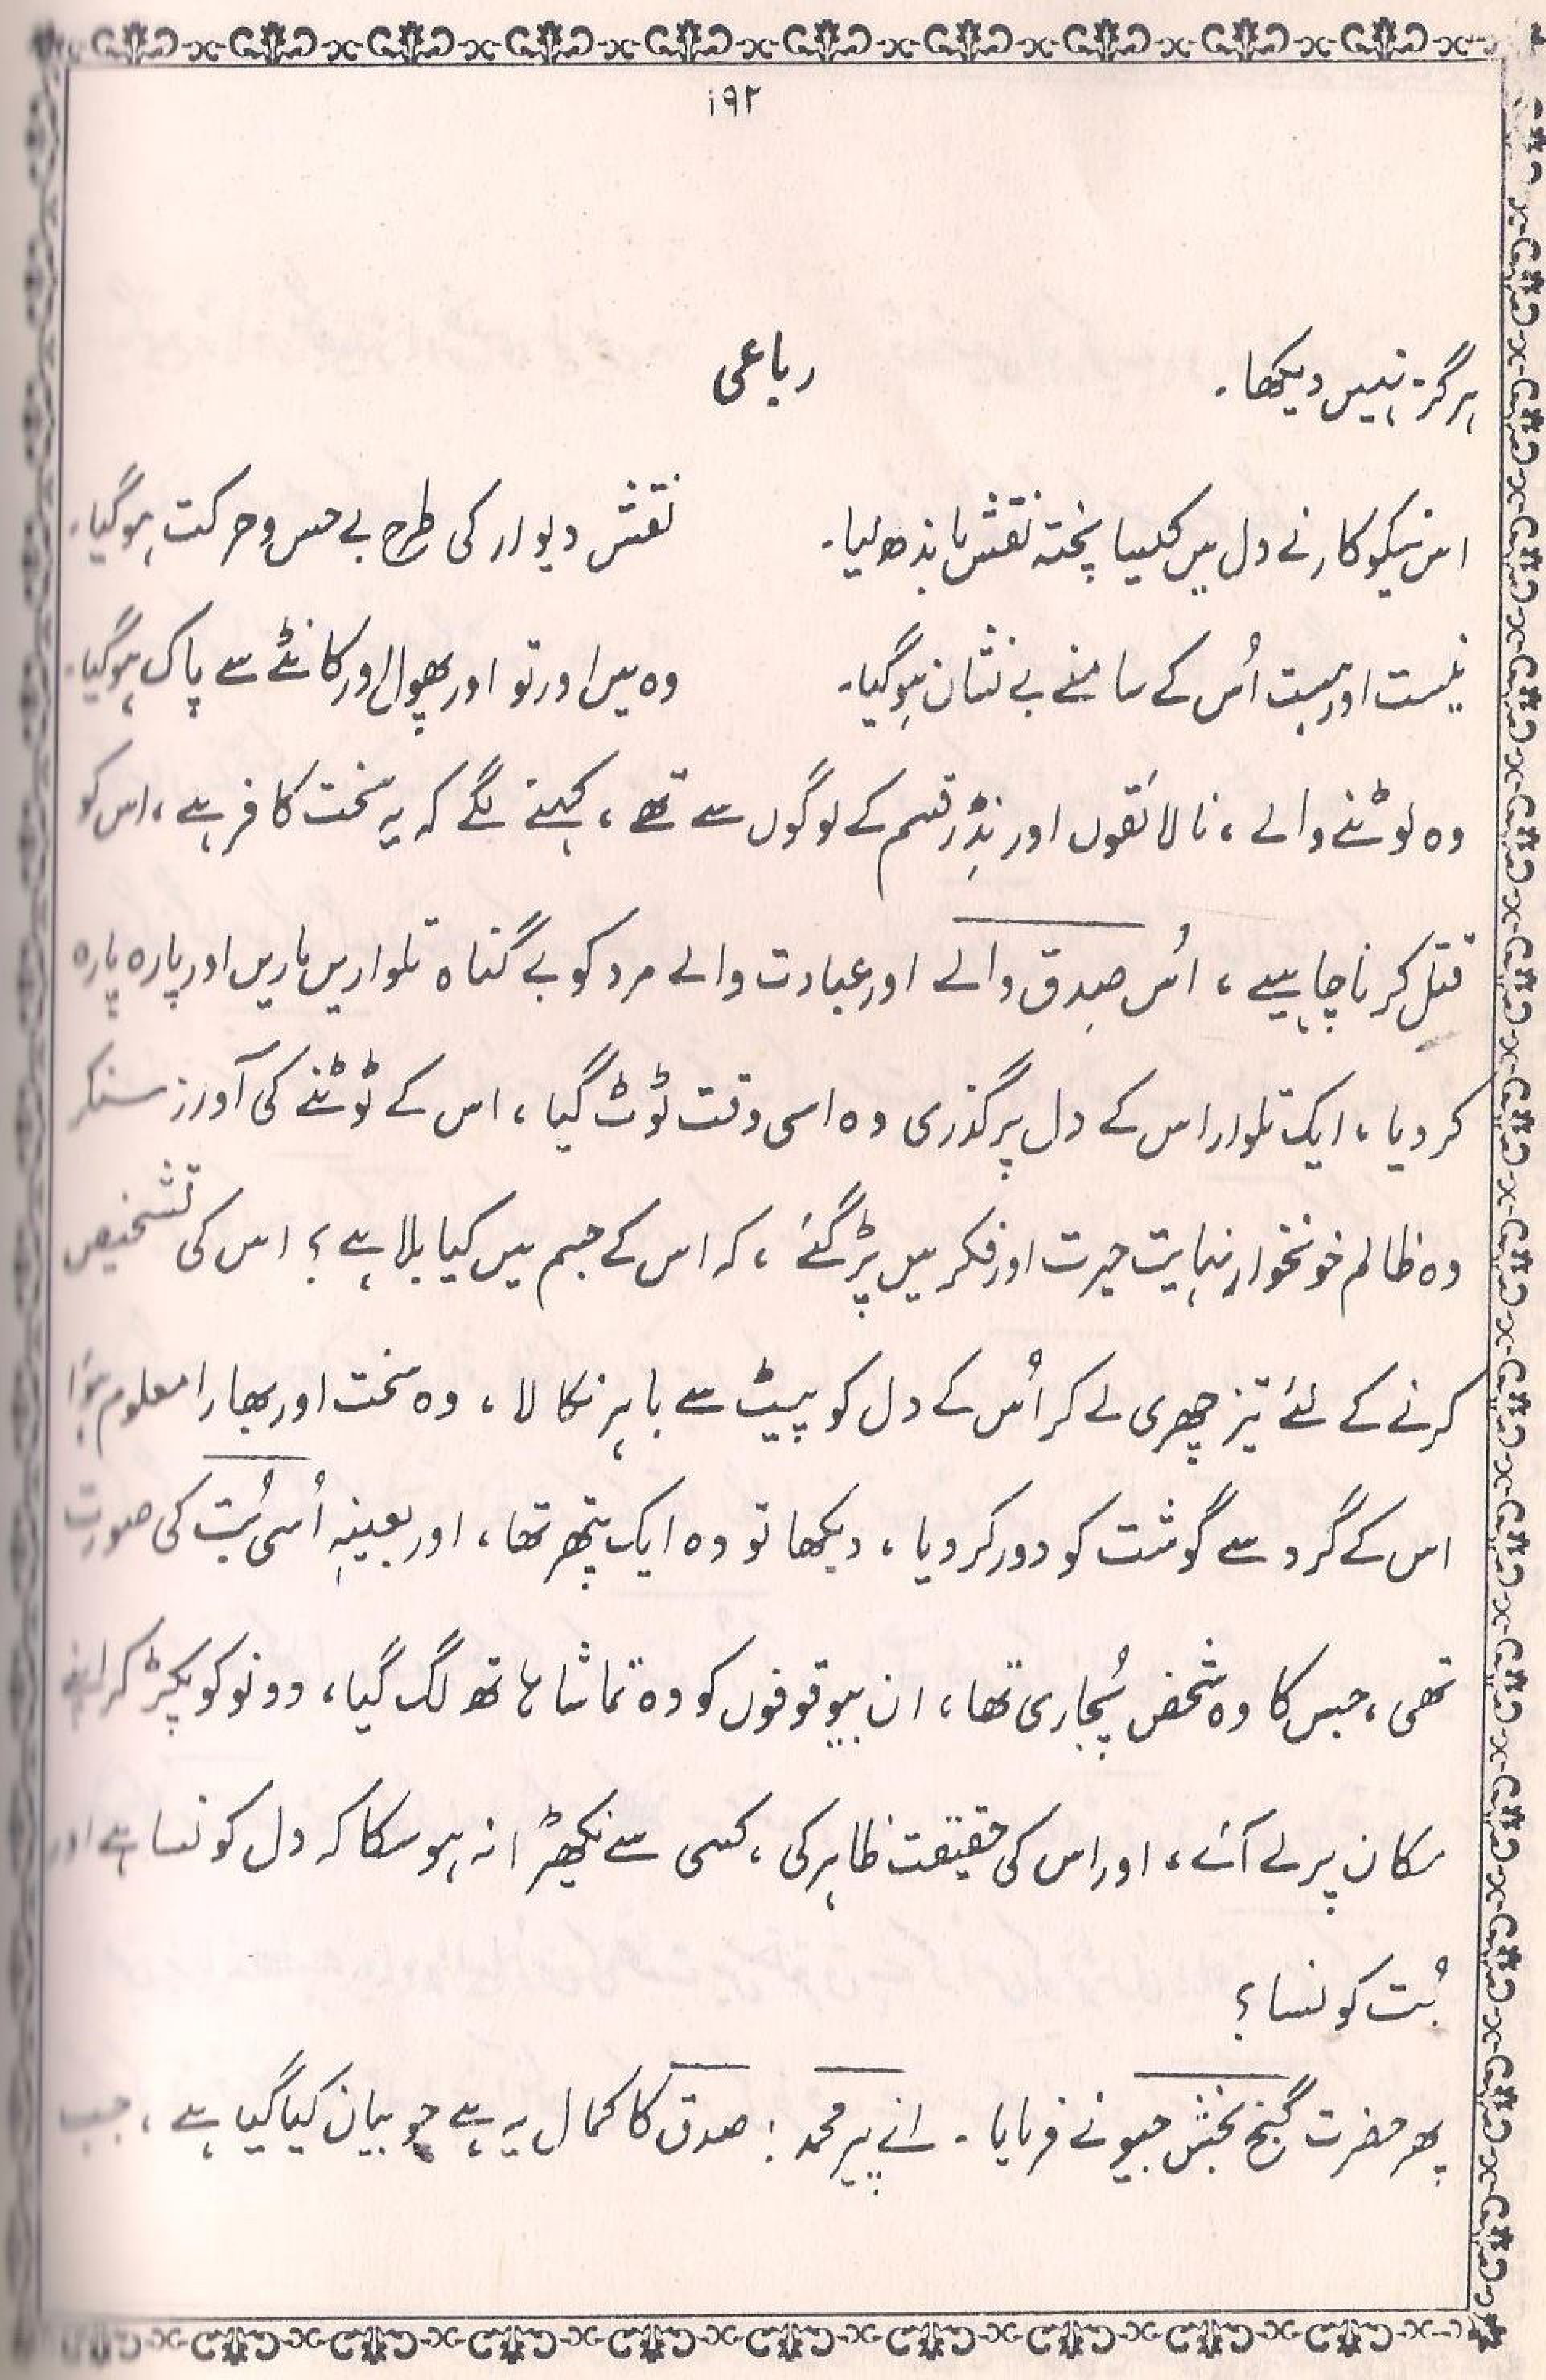 ۱۹۲
ہرگز نہیں دیکھا۔ رباعی
اس نیکوکار نے دل میں کیسا پختہ نقش باندھ لیا۔ نقش دیوار کی طرح بے حس و حرکت ہوگیا۔
نیست اور ہست اُس کے سامنے بے نشان ہوگیا۔ وہ میں اور تو اور پھول اور کانٹے سے پاک ہوگیا۔
وہ لوٹنے والے ، نالائقوں اور نڈِر قسم کے لوگوں سے تھے ، کہنے لگے کہ یہ سخت کافر ہے ، اس کو
قتل کرنا چاہیے ، اُس صِدق والے اور عبادت والے مرد کو بے گناہ تلواریں ماریں اور پارہ پارہ
کر دیا ، ایک تلوار اس کے دل پر گذری وہ اسی وقت ٹوٹ گیا ، اس کے ٹوٹنے کی آورز سنکر
وہ ظالم خونخوار نہایت حیرت اور فکر میں پڑ گئے ، کہ اس کے جسم میں کیا بلا ہے ؟ اس کی تشخیص
کرنے کے لئے تیز چھری لے کر اُس کے دل کو پیٹ سے باہر نکالا ، وہ سخت اور بھارا معلوم ہؤا
اس کے گرد سے گوشت کو دور کر دیا ، دیکھا تو وہ ایک پتھر تھا ، اور بعینہٖ اُسی بُت کی صورت
تھی ، جس کا وہ شخص پُجاری تھا ، ان بیوقوفوں کو وہ تماشا ہاتھ لگ گیا ، دونو کو پکڑ کر اپنے
مکان پر لے آئے ، اور اس کی حقیقت ظاہر کی ، کسی سے نکھیڑا نہ ہو سکا کہ دل کونسا ہے اور
بُت کونسا ؟
پھر حضرت گنج بخش جیو نے فرمایا ۔ اے پیر محمد ! صدق کا کمال یہ ہے جو بیان کیا گیا ہے ، جب